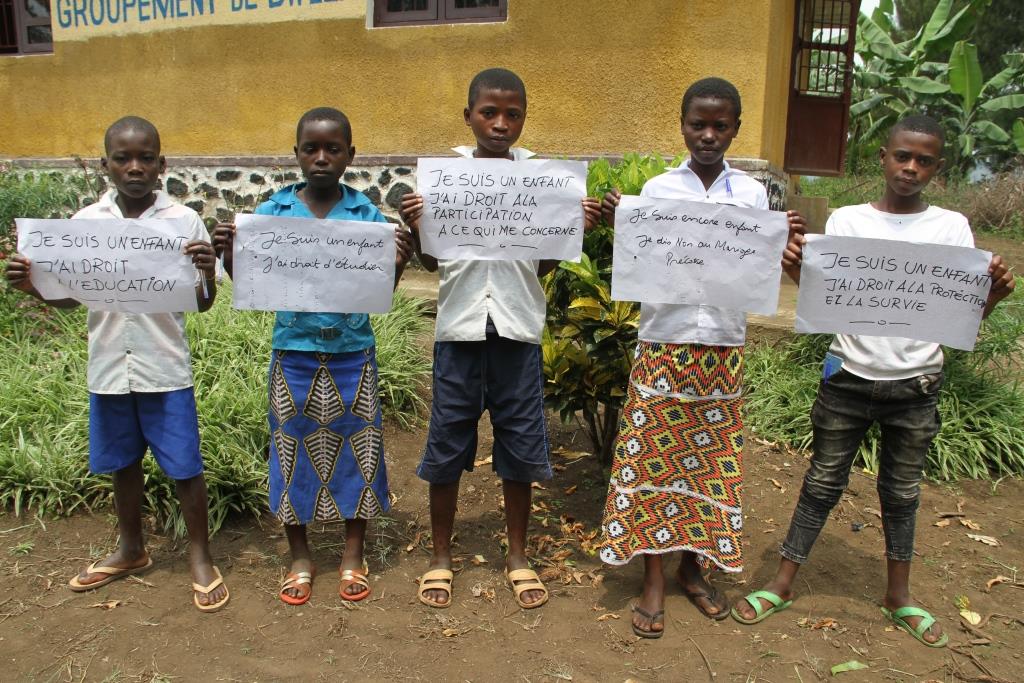 GROUPEMENT DE
JE SUIS UN ENFANT
J'AI DROIT
L'EDUCATION
Je suis un enfant
J'ai droit d'étudier
JE SUIS UN ENFANT
J'AI DROIT A LA
PARTICIPATION
A CE QUI ME CONCERNE
Je suis encore enfant
Je dis Non au Mariage
Précoce
JE SUIS UN ENFANT
J'AI DROIT A LA PROTECTION
ET LA SURVIE